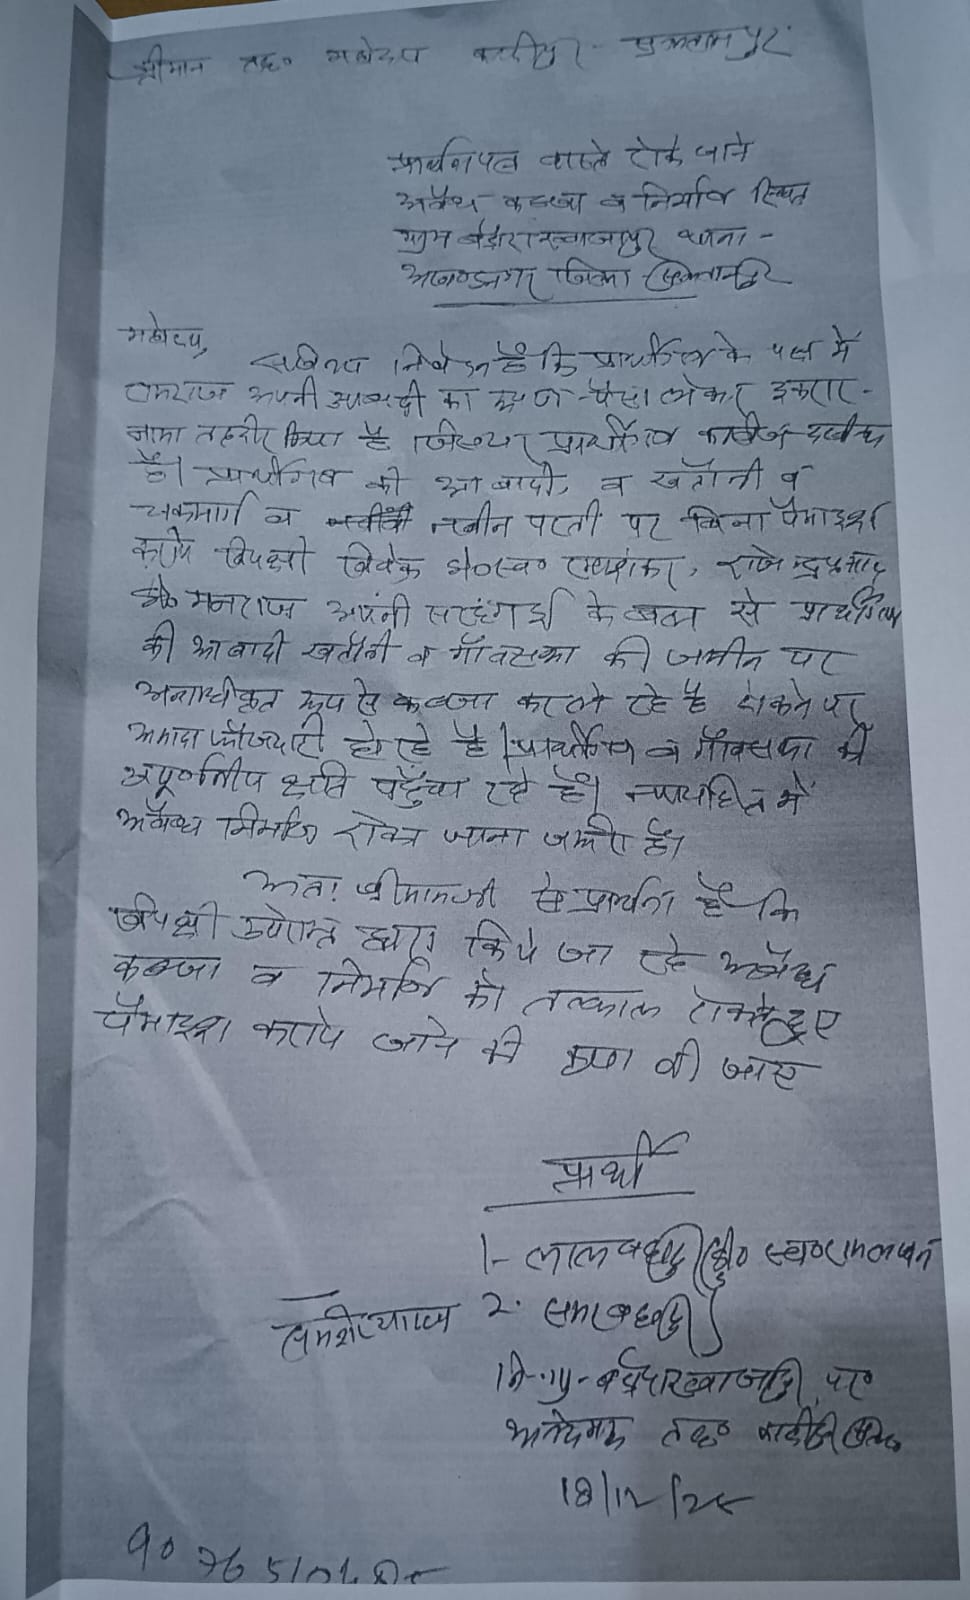 श्रीमान तह० महोदय कादीपुर - सुलतानपुर
प्रार्थनापत्र वास्ते रोके जाने
अवैध कब्जा व निर्माण स्थित
ग्राम थाना -
अखण्डनगर जिला सुलतानपुर
महोदय,
सविनय निवेदन है कि प्रार्थीगण के पक्ष में
रामराज अपनी आबादी का रुपया-पैसा लेकर इकरार-
नामा तहरीर किया है जिसपर प्रार्थीगण काबिज दखील
है। प्रार्थीगण की आबादी, व खतौनी व
चकमार्ग व नवीन परती पर बिना पैमाइश
कराये विपक्षी विवेक स्व० , राजेन्द्र प्रसाद
मनराज अपनी सरहंगई के बल से प्रार्थीगण
की आबादी खतौनी व गाँवसभा की जमीन पर
अनाधीकृत रूप से कब्जा कर ले रहे है रोकने पर
अमादा फौजदारी हो रहे है। प्रार्थीगण व गाँवसभा की
अपूर्णनीय क्षति पहुँचा रहे है। न्यायहित में
अवैध निर्माण रोका जाना जरूरी है।
अतः श्रीमानजी से प्रार्थना है कि
विपक्षी उपरोक्त द्वारा किये जा रहे अवैध
कब्जा व निर्माण को तत्काल रोकते हुए
पैमाइश कराये जाने की कृपा की जाए
प्रार्थी
1- लालबहादुर स्व०
2. रामबहादुर
नि. ग्रा - पर०
तह० कादीपुर
18/12/25